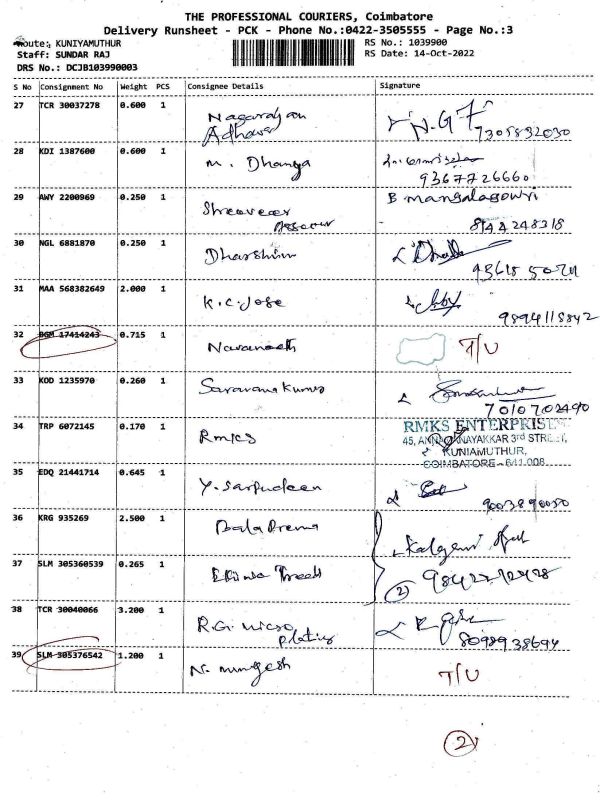 THE PROFESSIONAL COURIERS, Coimbatore
Delivery Runsheet - PCK - Phone No.:0422-3505555 - Page No.:3
Route: KUNIYAMUTHUR
RS No.: 1039900
Staff: SUNDAR RAJ
RS Date: 14-Oct-2022
DRS No.: DCJB103990003
S No Consignment No Weight PCS Consignee Details Signature
27 TCR 30037278 0.600 1 Nagarajan
N.G
7305832030
28 KDI 1387600 0.600 1 M. Dhanya
9367726660
29 AWY 2200969 0.250 1 B Mangalagowri
8144248318
30 NGL 6881870 0.250 1 Dharshini
31 MAA 568382649 2.000 1 K.C. Jose
9894118842
32 BGM 17414243 0.715 1 Navaneeth T/U
33 KOD 1235970 0.260 1 Saravana Kumar
7010702490
34 TRP 6072145 0.170 1 Rmks RMKS ENTERPRISES
45, NAYAKKAR 3rd STREET,
KUNIAMUTHUR,
COIMBATORE - 641 008
35 EDQ 21441714 0.645 1 Y. Sarpudeen
9003890050
36 KRG 935269 2.500 1 Bala Prema Kalyani
37 SLM 305360539 0.265 1 (2)
38 TCR 30040066 3.200 1 R.G. Micro
Plating
8098938694
39 SLM 305376542 1.200 1 N. Murugesh T/U
2